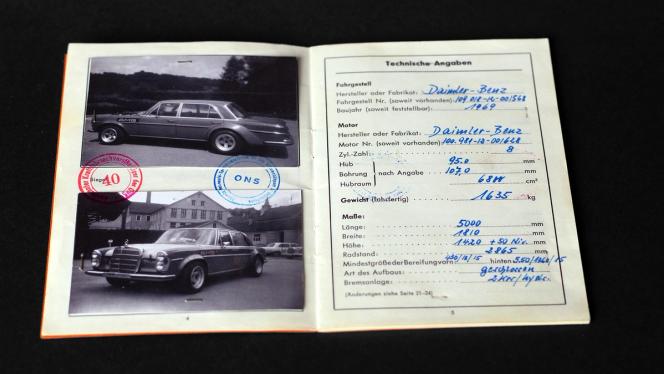 40
ONS
4
Technische Angaben
Fahrgestell
Hersteller oder Fabrikat: Daimler-Benz
Fahrgestell Nr. (soweit vorhanden) 109 018-12-001568
Baujahr (soweit feststellbar) 1969
Motor
Hersteller oder Fabrikat: Daimler-Benz
Motor Nr. (soweit vorhanden)
Zyl.-Zahl: 8
Hub 95.0 mm
Bohrung nach Angabe 107.0 mm
Hubraum cm³
Gewicht (fahrfertig) 1635 kg
Maße:
Länge: 5000 mm
Breite: 1810 mm
Höhe: 1420 + 50 Niv. mm
Radstand: 2865 mm
Mindestgröße der Bereifung vorn: hinten
Art des Aufbaus: geschlossen
Bremsanlage:
(Änderungen siehe Seite 21-24)
5